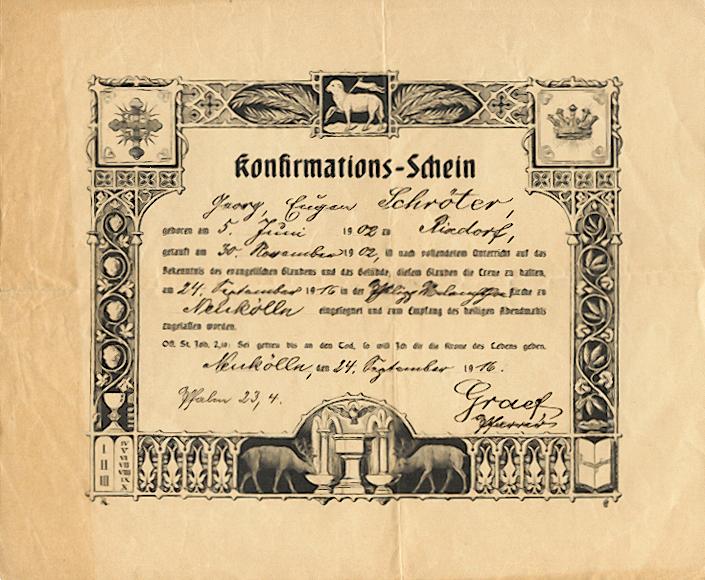 Konfirmations-Schein
Georg, Eugen Schröter,
geboren am 5. Juni 1902 zu Rixdorf,
getauft am 30. November 1902, ist nach vollendetem Unterricht auf das
Bekenntnis des evangelischen Glaubens und das Gelübde, diesem Glauben die Treue zu halten,
am 24. September 1916 in der Kirche zu
Neukölln eingesegnet und zum Empfang des heiligen Abendmahls
zugelassen worden.
Off. St. Joh. 2,10: Sei getreu bis an den Tod, so will ich dir die Krone des Lebens geben.
Neukölln, den 24. September 1916.
Psalm 23, 4.
Graef
Pfarrer
I
II
III
IV
V
VI
VII
VIII
IX
X